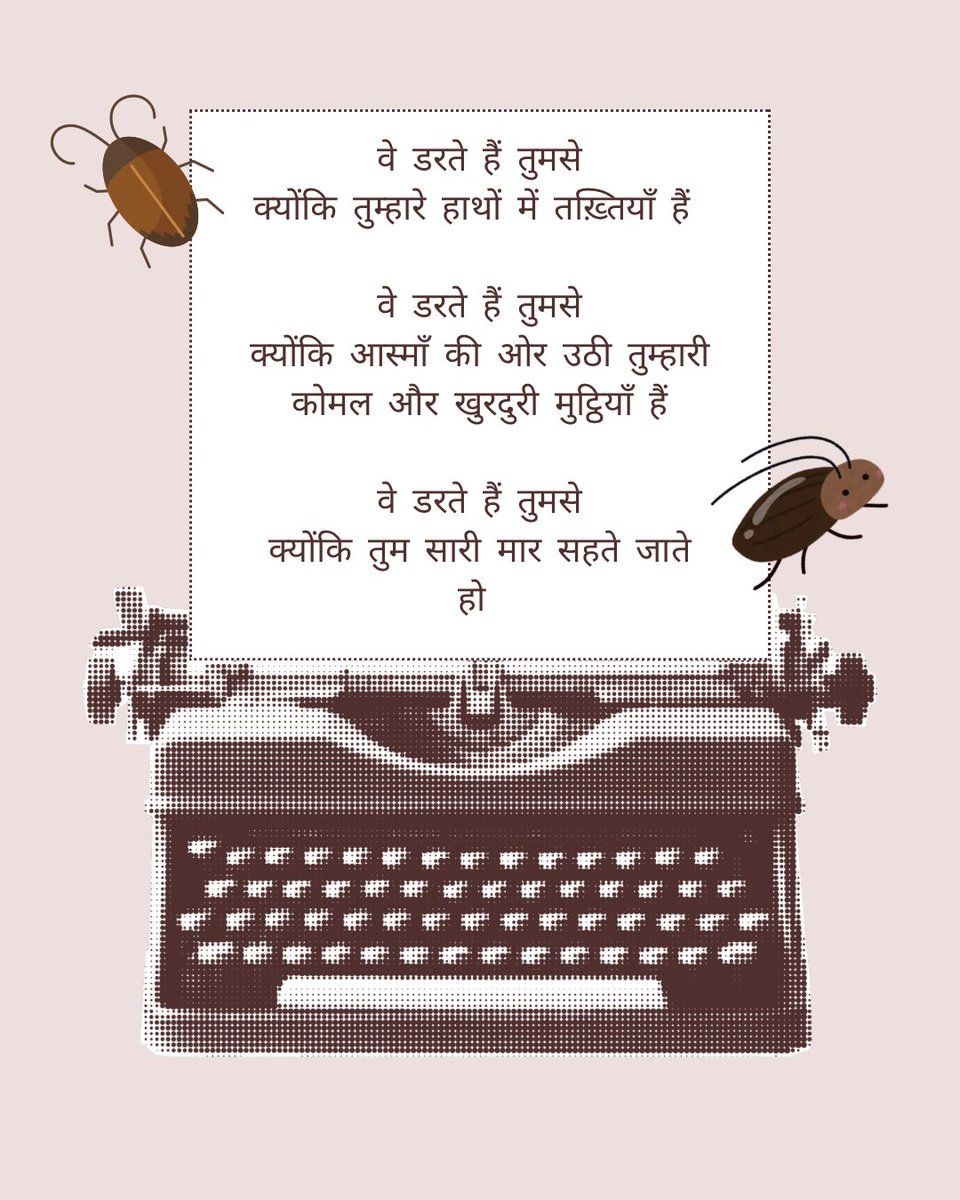 वे डरते हैं तुमसे
क्योंकि तुम्हारे हाथों में तख़्तियाँ हैं
वे डरते हैं तुमसे
क्योंकि आस्माँ की ओर उठी तुम्हारी
कोमल और खुरदुरी मुट्ठियाँ हैं
वे डरते हैं तुमसे
क्योंकि तुम सारी मार सहते जाते
हो